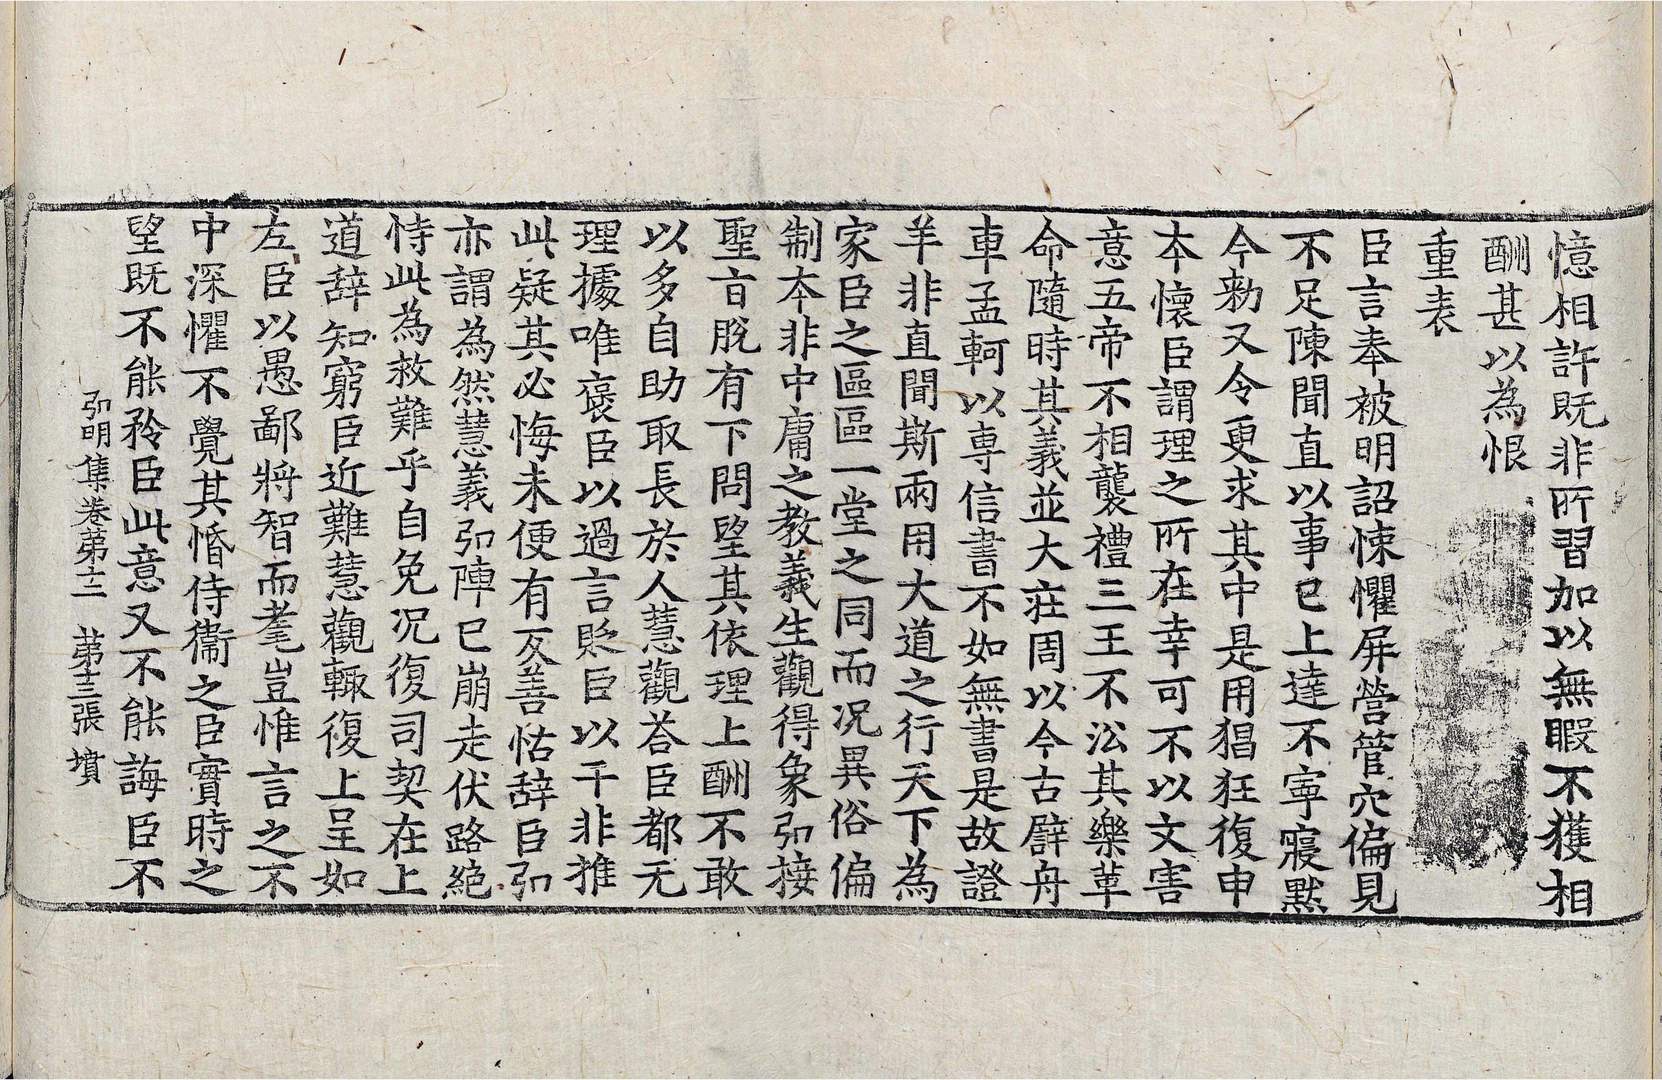 憶相許既非所習加以無暇不獲相
酬甚以為恨
重表
臣言奉被明詔悚懼屏營管穴偏見
不足陳聞直以事已上達不寧寢黙
今勑又令更求其中是用猖狂復申
本懷臣謂理之所在幸可不以文害
意五帝不相襲禮三王不㳂其樂革
命隨時其義並大莊周以今古譬舟
車孟軻以専信書不如無書是故證
羊非直聞斯兩用大道之行天下為
家臣之區區一堂之同而况異俗偏
制本非中庸之教義生觀得象弘接
聖旨脫有下問望其依理上酬不敢
以多自助取長於人慧觀荅臣都无
理據唯褒臣以過言貶臣以干非推
此疑其必悔未便有反善怙辞臣弘
亦謂為然慧義弘陣已崩走伏路絕
恃此為救難乎自免况復司契在上
道辞知窮臣近難慧觀輙復上呈如
左臣以愚鄙將智而耄豈惟言之不
中深懼不覺其惛侍衞之臣實時之
望既不能矜臣此意又不能誨臣不
弘明集卷第十二　第十三張　墳